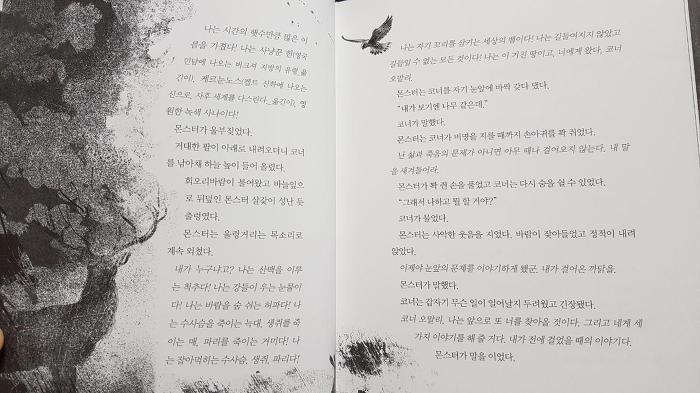 나는 시간의 햇수만큼 많은 이
름을 가졌다! 나는 사냥꾼 헌(영국
민담에 나오는 버크셔 지방의 유령_옮
긴이), 케르눈노스(켈트 신화에 나오는
신으로, 사후 세계를 다스린다._옮긴이), 영
원한 녹색 사나이다!
몬스터가 울부짖었다.
거대한 팔이 아래로 내려오더니 코너
를 낚아채 하늘 높이 들어 올렸다.
회오리바람이 불어왔고 바늘잎으
로 뒤덮인 몬스터 살갗이 성난 듯
출렁였다.
몬스터는 울렁거리는 목소리로
계속 외쳤다.
내가 누구냐고? 나는 산맥을 이루
는 척추다! 나는 강들이 우는 눈물이
다! 나는 바람을 숨 쉬는 허파다! 나
는 수사슴을 죽이는 늑대, 생쥐를 죽
이는 매, 파리를 죽이는 거미다! 나
는 잡아먹히는 수사슴, 생쥐, 파리다!
나는 자기 꼬리를 삼키는 세상의 뱀이다! 나는 길들여지지 않았고
길들일 수 없는 모든 것이다! 나는 이 거친 땅이고, 너에게 왔다, 코너
오말리.
몬스터는 코너를 자기 눈앞에 바싹 갖다 댔다.
“내가 보기엔 나무 같은데.”
코너가 말했다.
몬스터는 코너가 비명을 지를 때까지 손아귀를 꽉 쥐었다.
난 삶과 죽음의 문제가 아니면 아무 때나 걸어오지 않는다. 내 말
을 새겨들어라.
몬스터가 꽉 쥔 손을 풀었고 코너는 다시 숨을 쉴 수 있었다.
“그래서 나하고 뭘 할 거야?”
코너가 물었다.
몬스터는 사악한 웃음을 지었다. 바람이 잦아들었고 정적이 내려
앉았다.
이제야 눈앞의 문제를 이야기하게 됐군. 내가 걸어온 까닭을.
몬스터가 말했다.
코너는 갑자기 무슨 일이 일어날지 두려웠고 긴장됐다.
코너 오말리, 나는 앞으로 또 너를 찾아올 것이다. 그리고 네게 세
가지 이야기를 해 줄 거다. 내가 전에 걸었을 때의 이야기다.
몬스터가 말을 이었다.